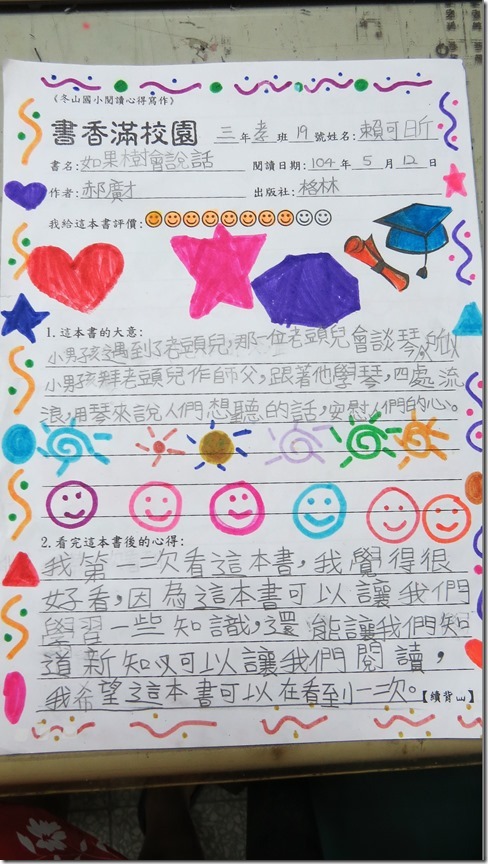 《冬山國小閱讀心得寫作》
書香滿校園 三年孝班19號姓名:賴可昕
書名:如果樹會說話 閱讀日期:104年5月12日
作者:郝廣才 出版社:格林
我給這本書評價:
1.這本書的大意:
小男孩遇到了老頭兒,那一位老頭兒會談琴,所以
小男孩拜老頭兒作師父,跟著他學琴,四處流
浪,用琴來說人們想聽的話,安慰人們的心。
2.看完這本書後的心得:
我第一次看這本書,我覺得很
好看,因為這本書可以讓我們
學習一些知識,還能讓我們知
道新知又可以讓我們閱讀,
我希望這本書可以在看到一次。【續背面】